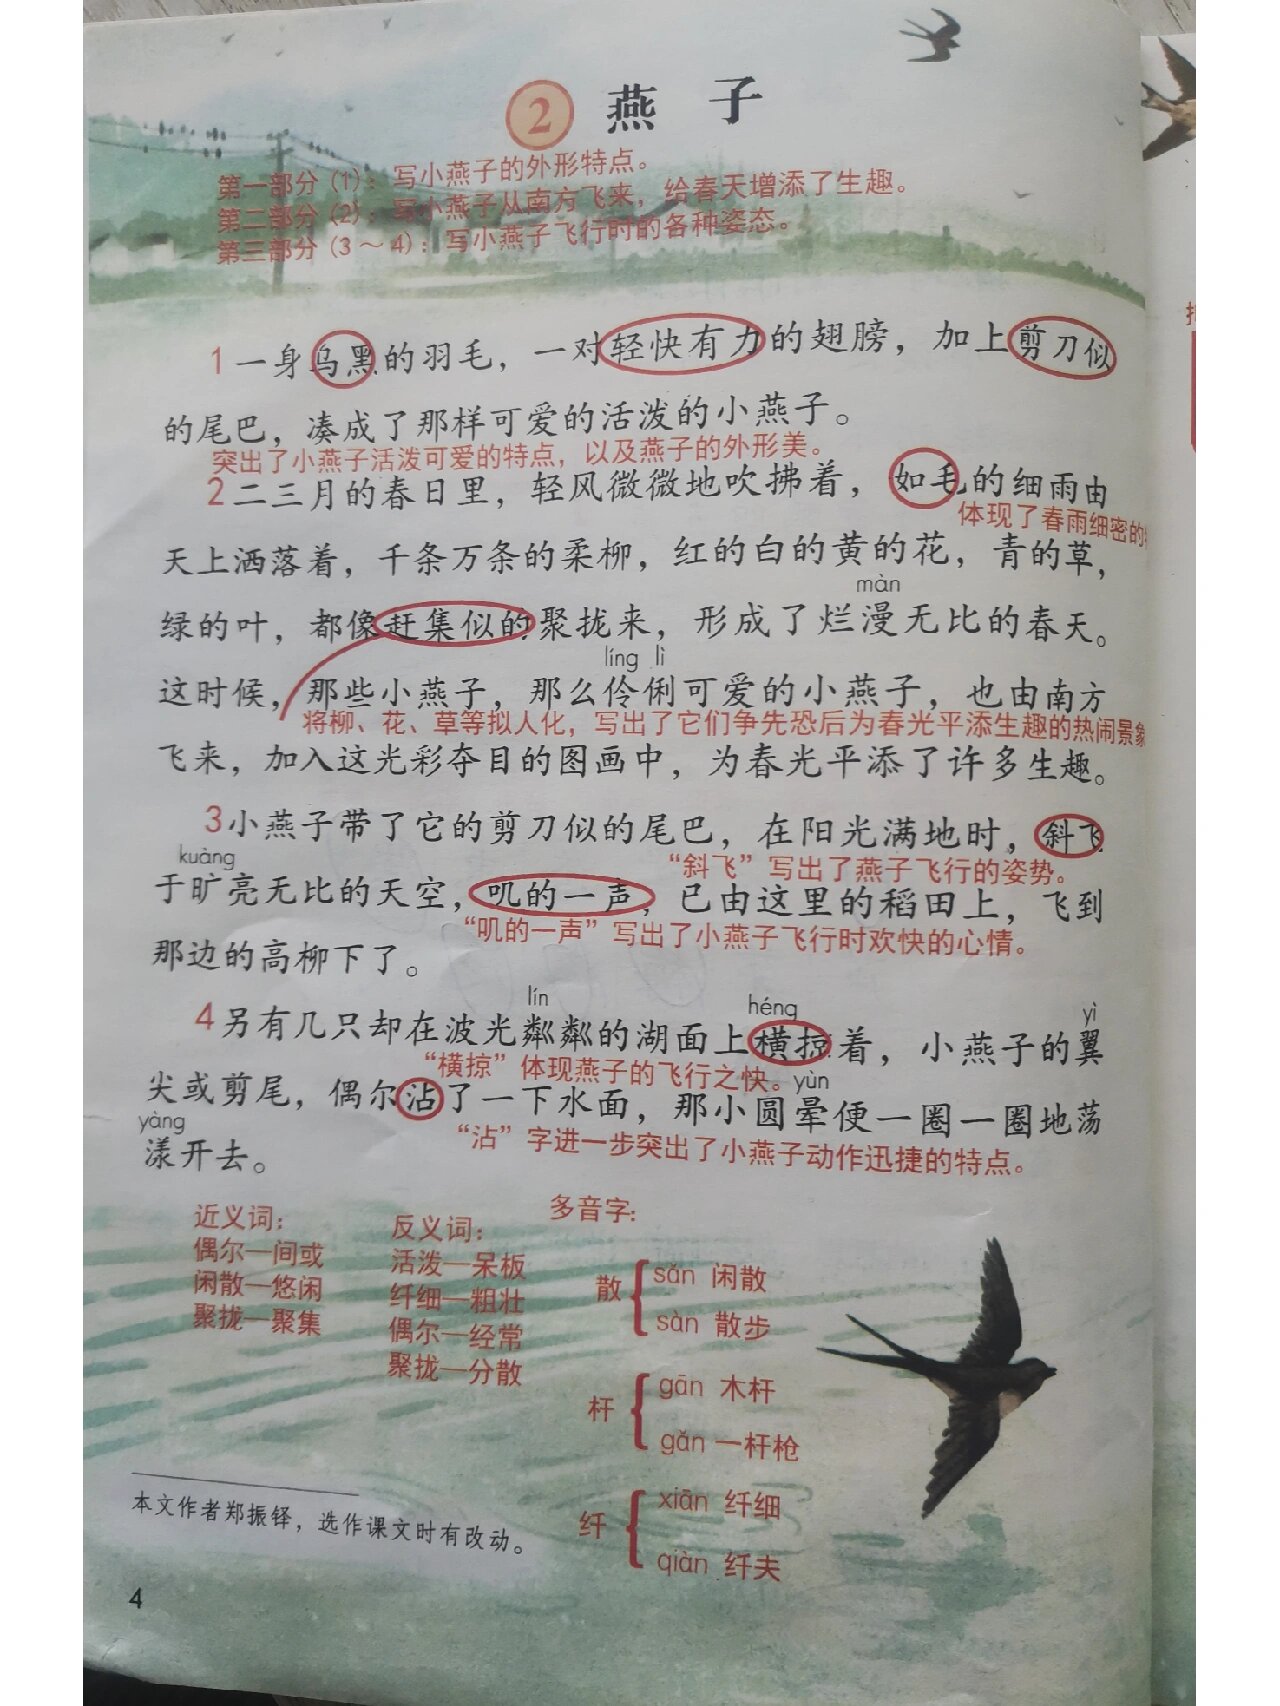 2 燕子
第一部分（1）：写小燕子的外形特点。
第二部分（2）：写小燕子从南方飞来，给春天增添了生趣。
第三部分（3～4）：写小燕子飞行时的各种姿态。
1 一身乌黑的羽毛，一对轻快有力的翅膀，加上剪刀似
的尾巴，凑成了那样可爱的活泼的小燕子。
突出了小燕子活泼可爱的特点，以及燕子的外形美。
2 二三月的春日里，轻风微微地吹拂着，如毛的细雨由
体现了春雨细密的
天上洒落着，千条万条的柔柳，红的白的黄的花，青的草，
màn
绿的叶，都像赶集似的聚拢来，形成了烂漫无比的春天。
líng lì
这时候，那些小燕子，那么伶俐可爱的小燕子，也由南方
将柳、花、草等拟人化，写出了它们争先恐后为春光平添生趣的热闹景象
飞来，加入这光彩夺目的图画中，为春光平添了许多生趣。
3 小燕子带了它的剪刀似的尾巴，在阳光满地时，斜飞
kuàng
“斜飞”写出了燕子飞行的姿势。
于旷亮无比的天空，叽的一声，已由这里的稻田上，飞到
“叽的一声”写出了小燕子飞行时欢快的心情。
那边的高柳下了。
lín héng yì
4 另有几只却在波光粼粼的湖面上横掠着，小燕子的翼
“横掠”体现燕子的飞行之快。
yùn
尖或剪尾，偶尔沾了一下水面，那小圆晕便一圈一圈地荡
yàng
“沾”字进一步突出了小燕子动作迅捷的特点。
漾开去。
近义词：
偶尔—间或
闲散—悠闲
聚拢—聚集
反义词：
活泼—呆板
纤细—粗壮
偶尔—经常
聚拢—分散
多音字：
散 sǎn 闲散
sàn 散步
杆 gān 木杆
gǎn 一杆枪
纤 xiān 纤细
qiàn 纤夫
本文作者郑振铎，选作课文时有改动。
4